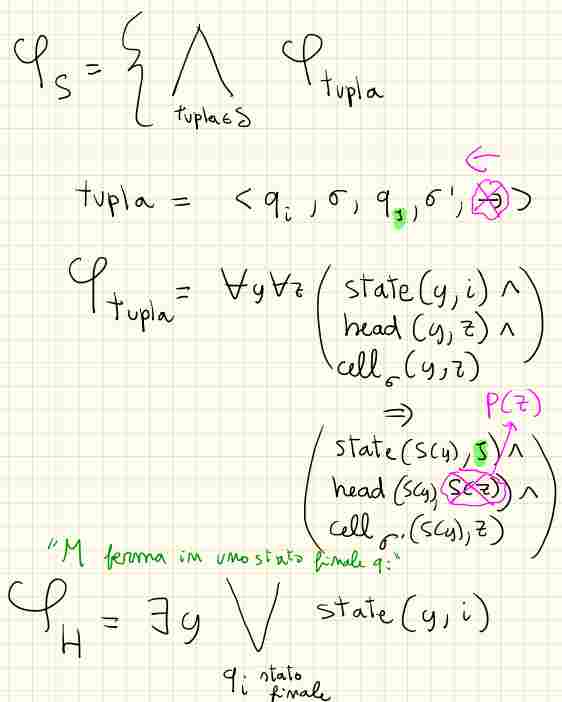 φ_S = { ⋀ φ_tupla
tupla ∈ δ
←
tupla = < q_i , σ, q_J , σ' , → >
φ_tupla = ∀y∀z ( state(y, i) ∧
head (y, z) ∧
cell_σ (y, z) )
⇒ P(z)
( state(S(y), J) ∧
head (S(y), S(z)) ∧
cell_σ' (S(y), z) )
"M ferma in uno stato finale q_i"
φ_H = ∃y ⋁ state(y, i)
q_i stato
finale